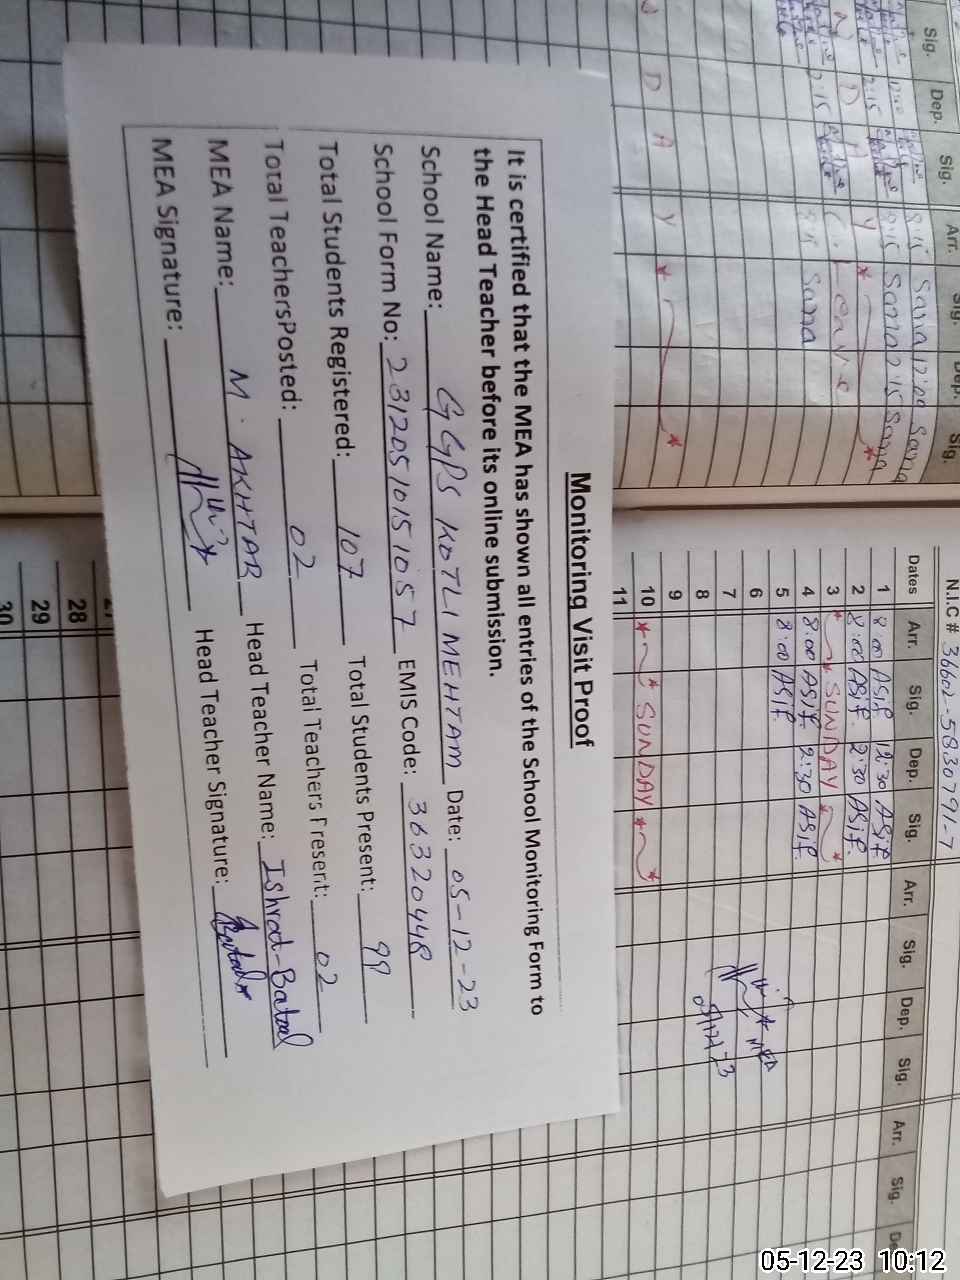 Monitoring Visit Proof
It is certified that the MEA has shown all entries of the School Monitoring Form to
the Head Teacher before its online submission.
School Name: GGPS KOTLI MEHTAM Date: 05-12-23
School Form No: 23120510151057 EMIS Code: 36320448
Total Students Registered: 107 Total Students Present: 99
Total TeachersPosted: 02 Total Teachers Present: 02
MEA Name: M. AKHTAR Head Teacher Name: Ishrat-Batool
MEA Signature: Head Teacher Signature:
N.I.C# 36602-5830791-7
Dates Arr. Sig. Dep. Sig. Arr. Sig. Dep. Sig. Arr. Sig.
1 8:00 Asif 12:30 Asif
2 8:00 Asif 2:30 Asif
3 * SUNDAY *
4 8:00 Asif 2:30 Asif
5 8:00 Asif
6
7
8
9
10 * SUNDAY *
11
28
29
30
Sig. Dep. Sig. Arr. Sig. Dep. Sig.
8:15 Sana 12:00 Sana
8:15 Sana 2:15 Sana
D A Y
C. Leave
2:15 8:15 Sana
D A Y
MEA
05-12-23 10:12